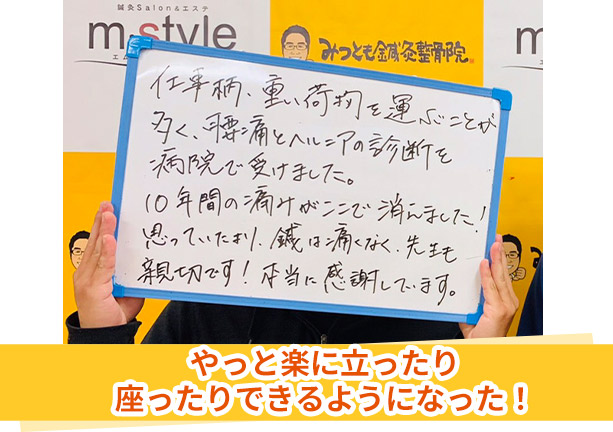 鍼灸Salon&エステ
m.style
エム
みつとも鍼灸整骨院
m
エ
仕事柄、重い荷物を運ぶことが
多く、腰痛とヘルニアの診断を
病院で受けました。
10年間の痛みがここで消えました！
思っていたより、鍼は痛くなく、先生も
親切です！本当に感謝しています。
やっと楽に立ったり
座ったりできるようになった！